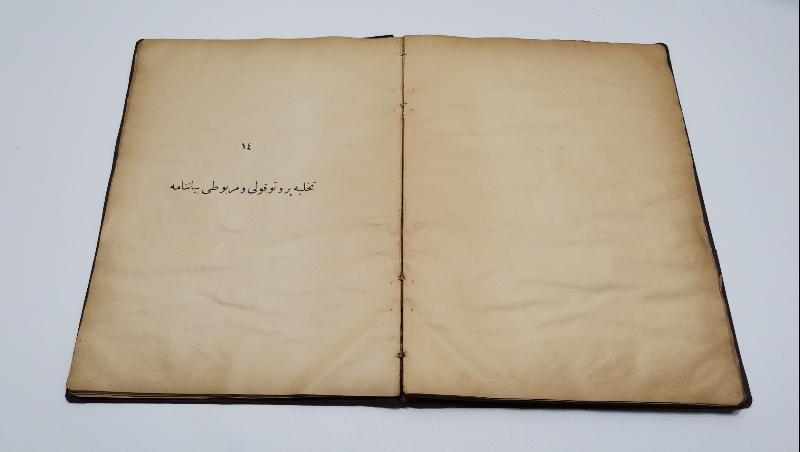 ١٤
تخليه پروتوقولى و مربوطى بياننامه